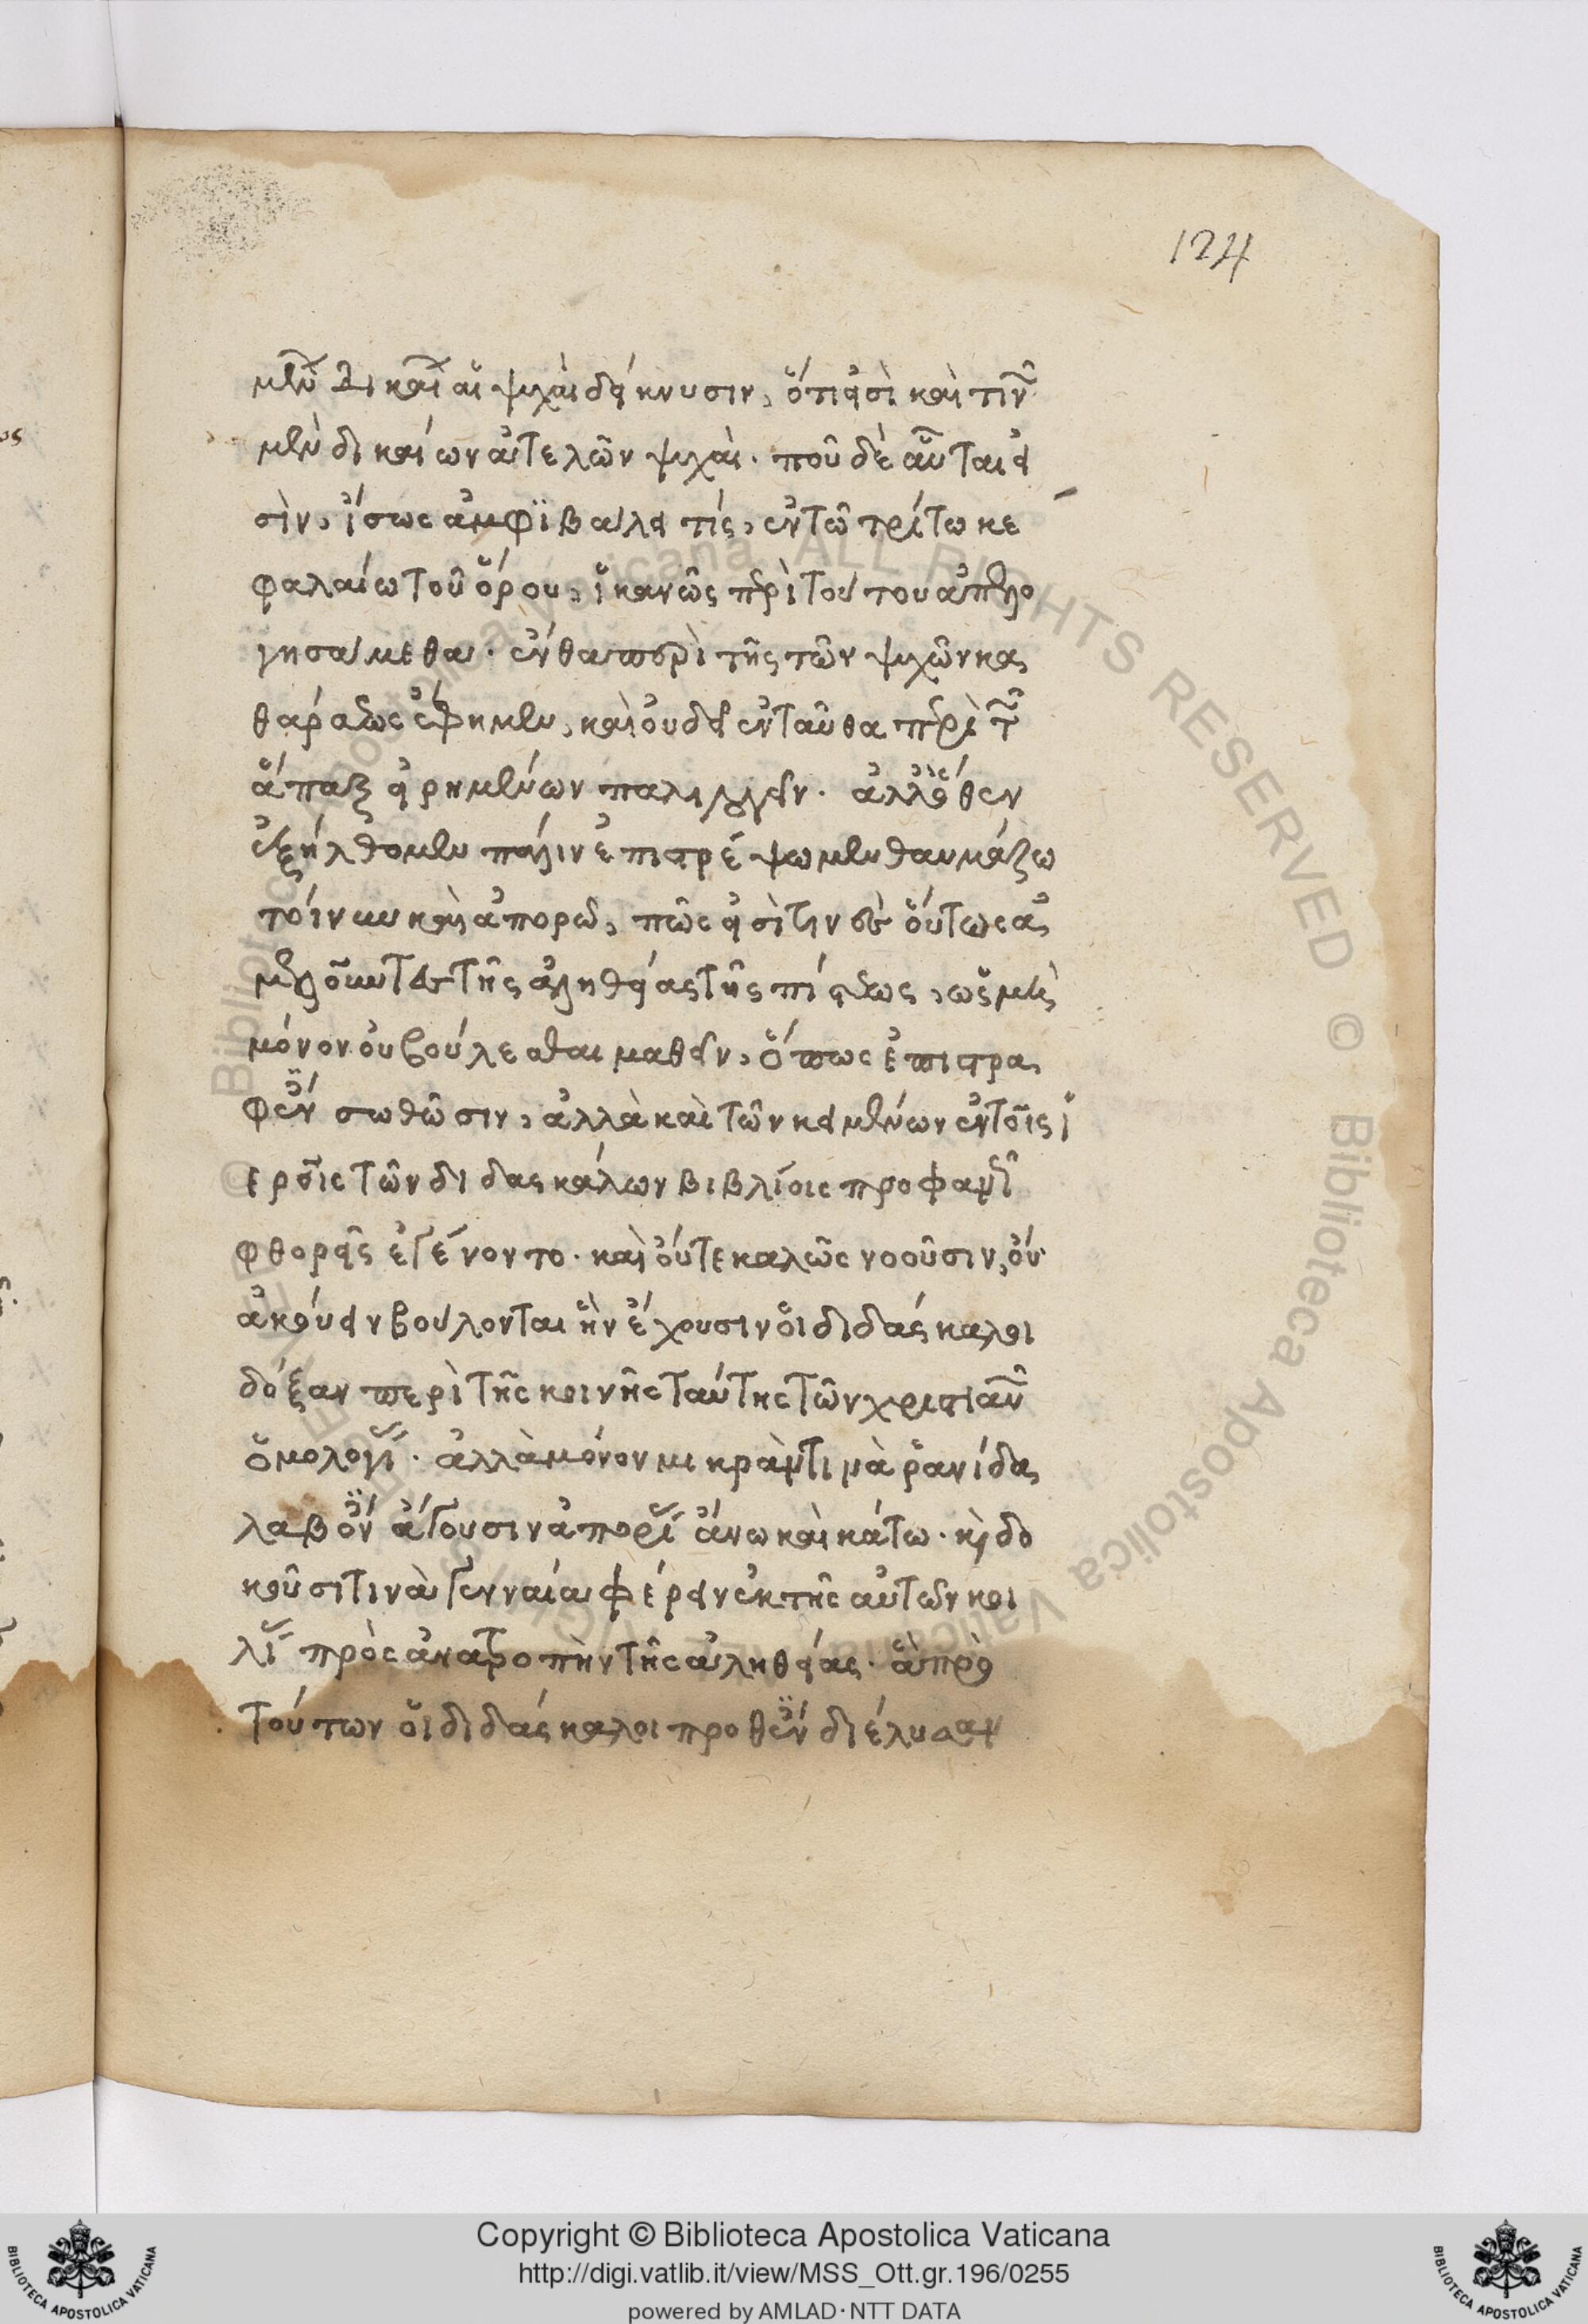 124
μὲν δίκαιαι αἱ ψυχαὶ δείκνυσιν, ὅτι εἰσὶ καὶ τινῶν
μὲν δικαίων ἀτελῶν ψυχαὶ· ποῦ δὲ αὗται εἰ
σὶν, ἴσως ἀμφϊβάλει τίς, ἐν τῶ τρίτω κε
φαλαίω τοῦ ὅρου, ἱκανῶς περὶ τούτου ἀπελο
γησάμεθα· ἔνθα περὶ τῆς τῶν ψυχῶν κα
θάρσεως ἔφημεν, καὶ οὐ δεῖ ἐνταῦθα περὶ τῶν
ἅπαξ εἰρημένων παλιλλογεῖν· ἀλλ' ὅθεν
ἐξήλθομεν πάλιν ἐπιστρέψωμεν θαυμάζω
τοίνυν καὶ ἀπορῶ, πῶς εἰσὶ τινὲς οὕτως ἀ
μελοῦντες τῆς ἀληθείας τῆς πίστεως, ὡς μὴ
μόνον οὐ βούλεσθαι μαθεῖν, ὅπως ἐπιστρα
φέντες σωθῶσιν, ἀλλὰ καὶ τῶν κειμένων ἐν τοῖς ἱ
εροῖς τῶν διδασκάλων βιβλίοις προφανεῖς
φθορεῖς ἐγένοντο· καὶ οὔτε καλῶς νοοῦσιν, οὔτε
ἀκούειν βούλονται ἣν ἔχουσιν οἱ διδάσκαλοι
δόξαν περὶ τῆς κοινῆς ταύτης τῶν χριστιανῶν
ὁμολογίας· ἀλλὰ μόνον μικρὰν τινὰ ῥανίδα
λαβόντες ἄγουσιν ἀπορίας ἄνω καὶ κάτω· καὶ δο
κοῦσι τινὰ γενναία φέρειν ἐκ τῆς αὐτῶν κοι
λίας πρὸς ἀνατροπὴν τῆς ἀληθείας· ἃ πρὸ
τούτων οἱ διδάσκαλοι προθέντες διέλυσαν
Copyright © Biblioteca Apostolica Vaticana
http://digi.vatlib.it/view/MSS_Ott.gr.196/0255
powered by AMLAD·NTT DATA
BIBLIOTECA APOSTOLICA VATICANA
BIBLIOTECA APOSTOLICA VATICANA
© Biblioteca Apostolica Vaticana ALL RIGHTS RESERVED
© Biblioteca Apostolica Vaticana ALL RIGHTS RESERVED